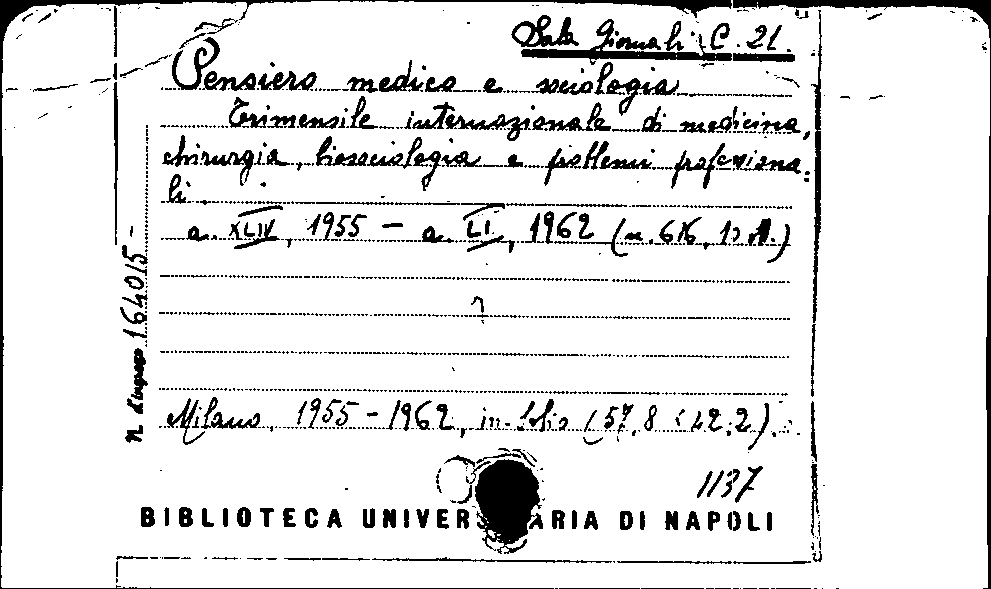 Sala Giornali C. 21.
Pensiero medico e sociologia
Trimensile internazionale di medicina,
chirurgia, biosociologia e problemi professiona:
li.
a. XLIV, 1955 – a. LI, 1962 (n. 616,
Milano, 1955-1962, in-folio (57,8 42,2).
n. d'ingresso 164015-
1137
BIBLIOTECA UNIVER ARIA DI NAPOLI